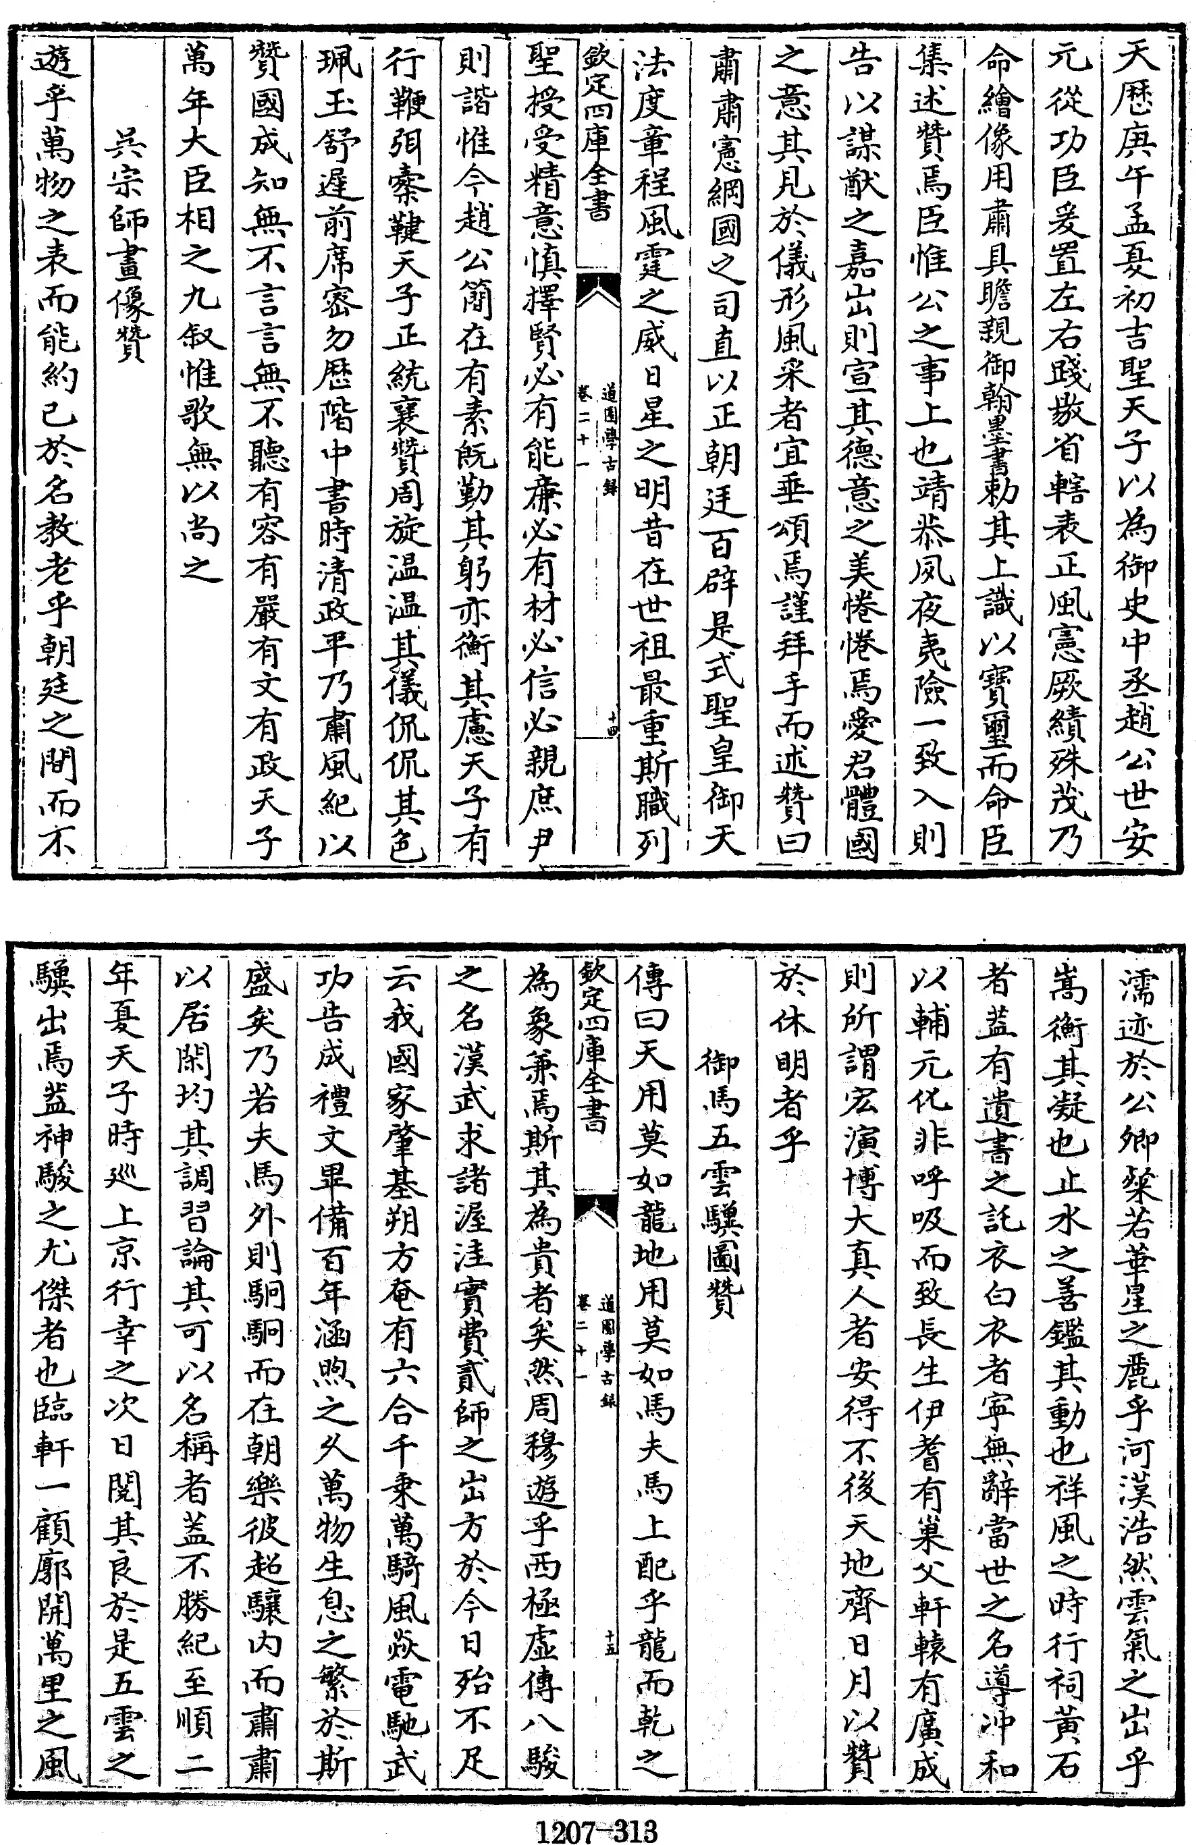 天歷庚午孟夏初吉聖天子以為御史中丞趙公世安
元從功臣爰置左右踐敭省轄表正風憲厥績殊茂乃
命繪像用肅具瞻親御翰墨書勅其上識以寶璽而命臣
集述贊焉臣惟公之事上也靖恭夙夜夷險一致入則
告以謀猷之嘉出則宣其德意之美惓惓焉愛君體國
之意其見於儀形風采者宜垂頌焉謹拜手而述贊曰
肅肅憲綱國之司直以正朝廷百辟是式聖皇御天
法度章程風霆之威日星之明昔在世祖最重斯職列
欽定四庫全書
道園學古錄
卷二十一
十四
聖授受精意慎擇賢必有能亷必有材必信必親庶尹
則諧惟今趙公簡在有素既勤其躬亦衡其慮天子有
行鞭弭櫜鞬天子正統襄贊周旋温温其儀侃侃其色
珮玉舒遲前席密勿歷階中書時清政平乃肅風紀以
贊國成知無不言言無不聽有容有嚴有文有政天子
萬年大臣相之九叙惟歌無以尚之
吳宗師畫像贊
遊乎萬物之表而能約已於名教老乎朝廷之間而不
濡迹於公卿粲若華星之麗乎河漢浩然雲氣之出乎
嵩衡其凝也止水之善鑑其動也祥風之時行祠黄石
者葢有遺書之託衣白衣者寜無辭當世之名導冲和
以輔元化非呼吸而致長生伊耆有巢父軒轅有廣成
則所謂宏演博大真人者安得不後天地齊日月以贊
於休明者乎
御馬五雲驥圖贊
傳曰天用莫如龍地用莫如馬夫馬上配乎龍而乾之
欽定四庫全書
道園學古錄
卷二十一
十五
為象兼焉斯其為貴者矣然周穆遊乎西極虛傳八駿
之名漢武求諸渥洼實費貳師之出方於今日殆不足
云我國家肇基朔方奄有六合千乘萬騎風猋電馳武
功告成禮文畢備百年涵煦之久萬物生息之繁於斯
盛矣乃若夫馬外則駉駉而在朝樂彼超驤内而肅肅
以居閑均其調習論其可以名稱者葢不勝紀至順二
年夏天子時廵上京行幸之次日閱其良於是五雲之
驥出焉葢神駿之尤傑者也臨軒一顧廓開萬里之風
1207-313